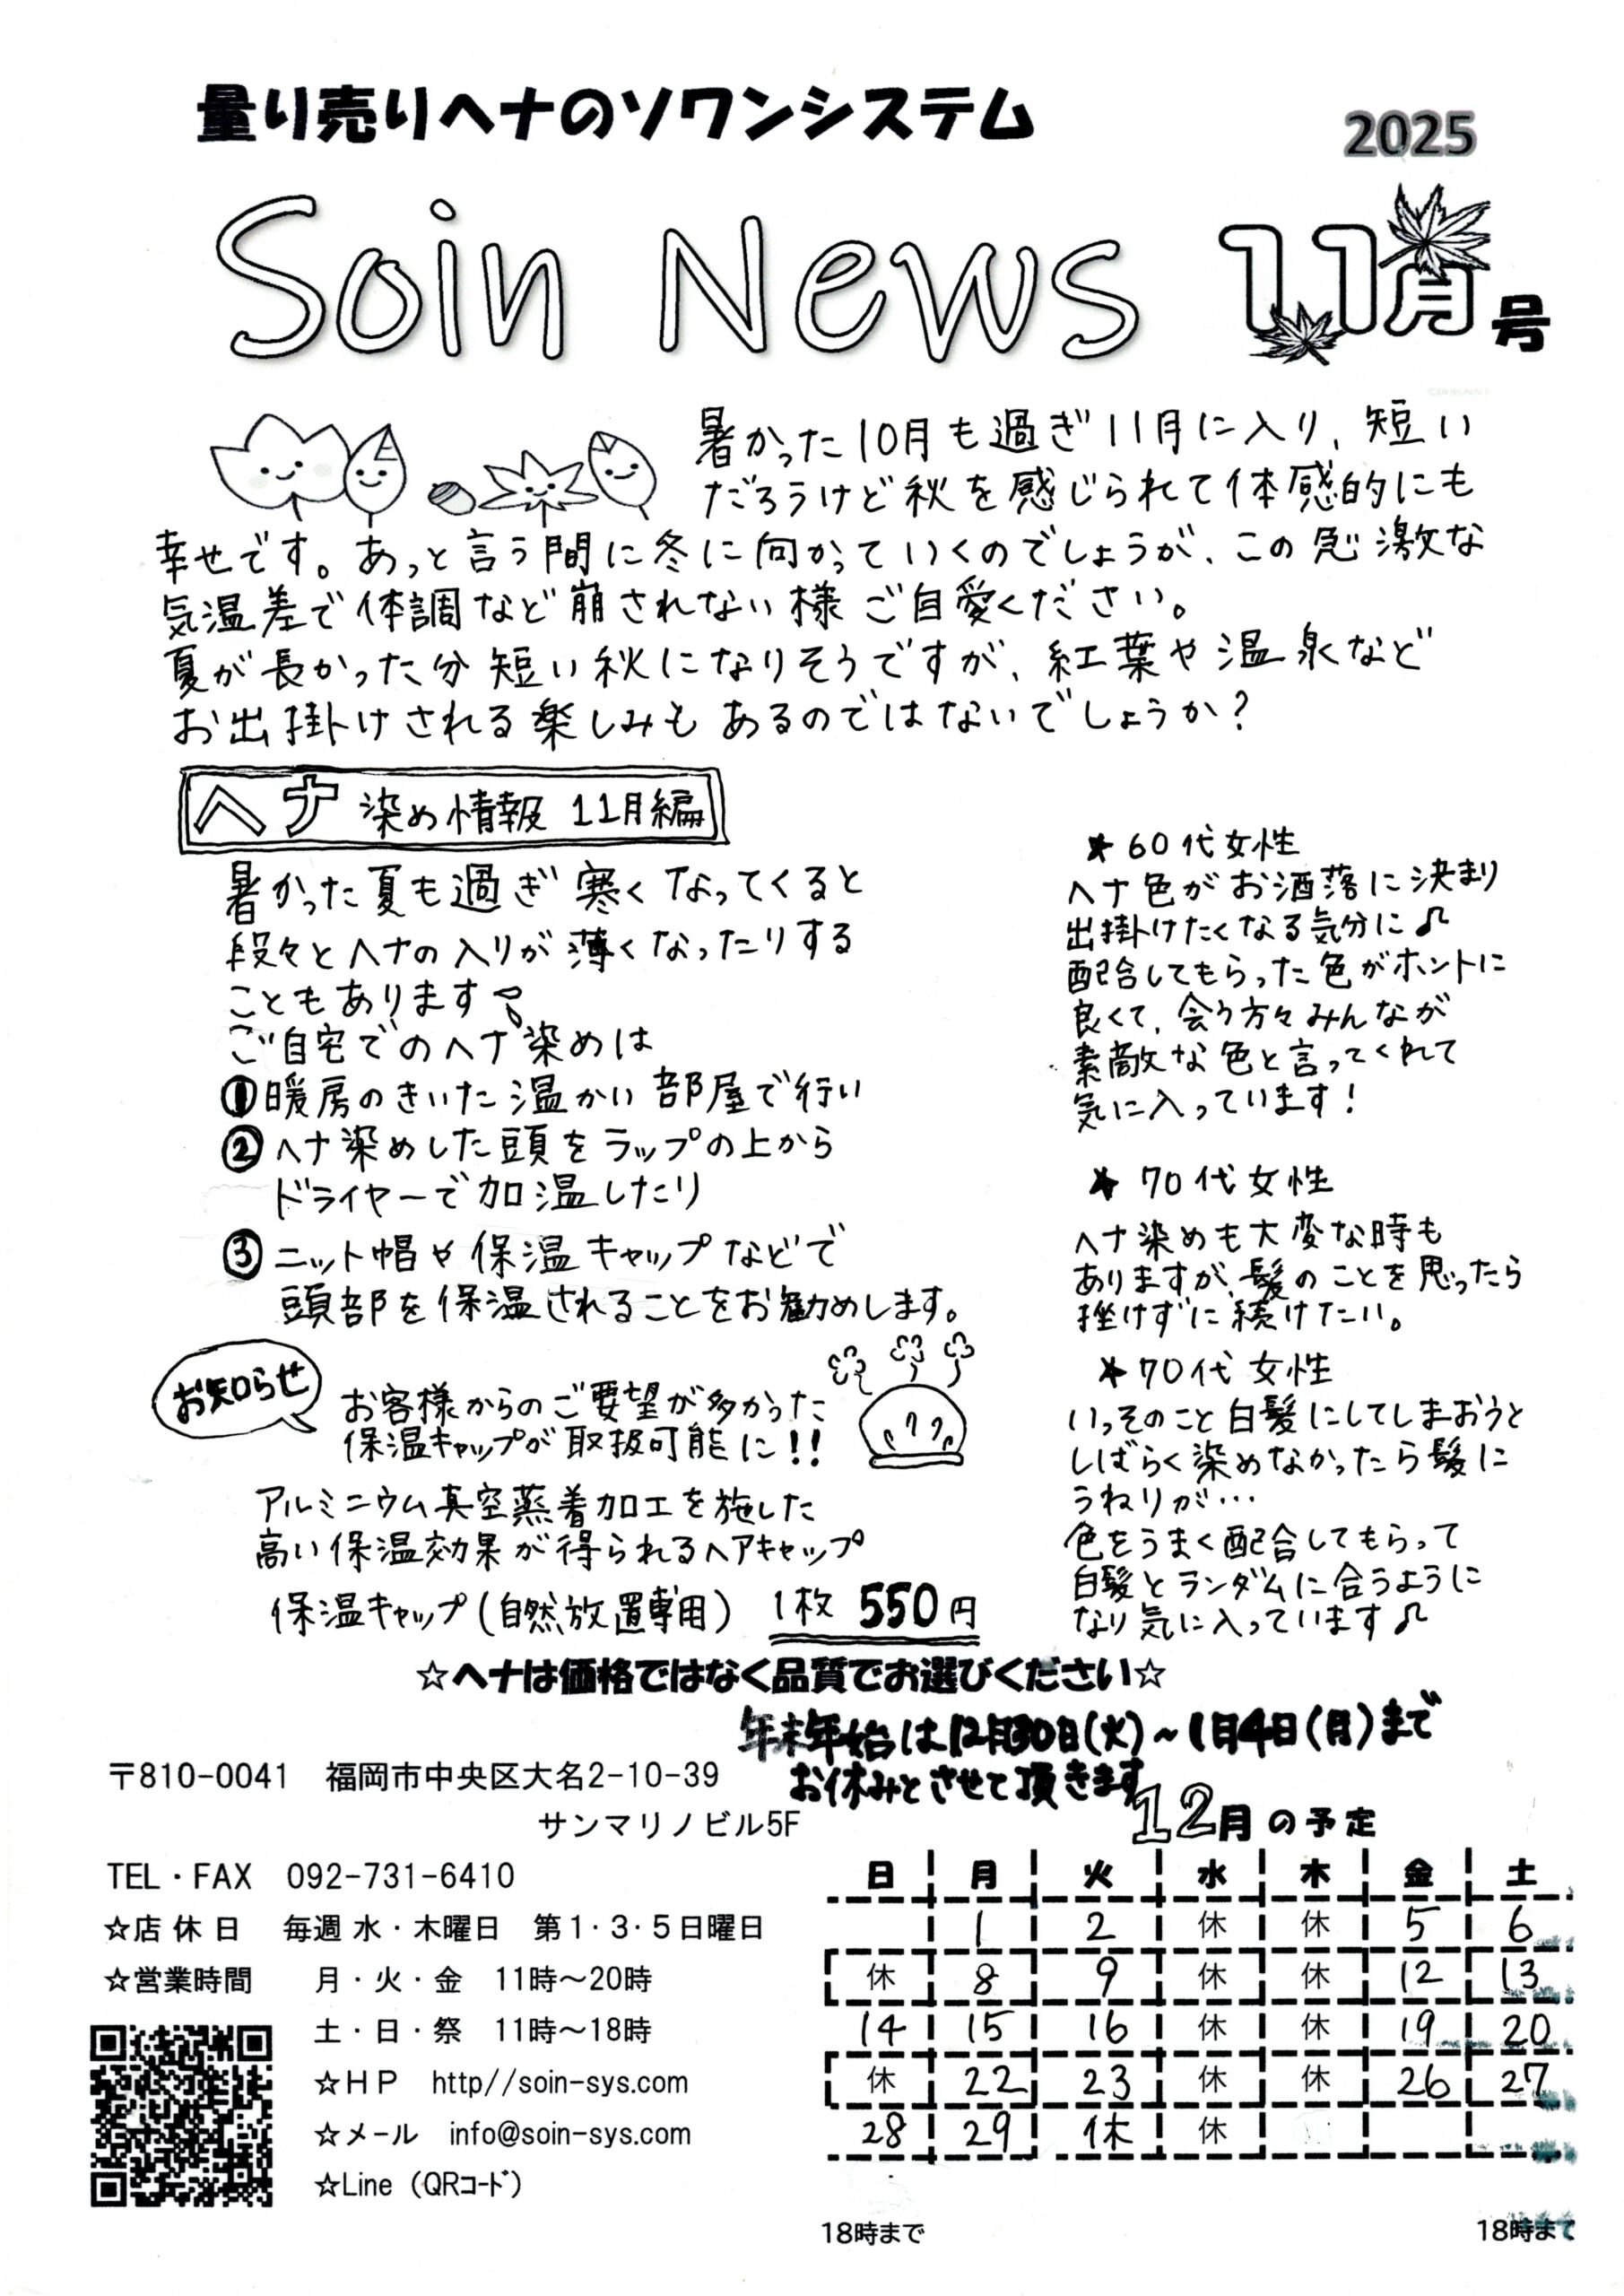 量り売りヘナのソワンシステム
2025
Soin News 11月号
暑かった10月も過ぎ11月に入り、短い
だろうけど秋を感じられて体感的にも
幸せです。あっと言う間に冬に向かっていくのでしょうが、この急激な
気温差で体調など崩されない様ご自愛ください。
夏が長かった分短い秋になりそうですが、紅葉や温泉など
お出掛けされる楽しみもあるのではないでしょうか?
ヘナ 染め情報 11月編
暑かった夏も過ぎ寒くなってくると
段々とヘナの入りが薄くなったりする
こともあります
ご自宅でのヘナ染めは
①暖房のきいた温かい部屋で行い
②ヘナ染めした頭をラップの上から
ドライヤーで加温したり
③ニット帽や保温キャップなどで
頭部を保温されることをお勧めします。
お知らせ
お客様からのご要望が多かった
保温キャップが取扱可能に!!
アルミニウム真空蒸着加工を施した
高い保温効果が得られるヘアキャップ
保温キャップ(自然放置専用) 1枚 550円
★60代女性
ヘナ色がお洒落に決まり
出掛けたくなる気分に♫
配合してもらった色がホントに
良くて、会う方々みんなが
素敵な色と言ってくれて
気に入っています!
★70代女性
ヘナ染めも大変な時も
ありますが、髪のことを思ったら
挫けずに続けたい。
★70代女性
いっそのこと白髪にしてしまおうと
しばらく染めなかったら髪に
うねりが…
色をうまく配合してもらって
白髪とランダムに合うように
なり気に入っています♫
☆ヘナは価格ではなく品質でお選びください☆
年末年始は12月30日(火)~1月4日(月)まで
お休みとさせて頂きます
〒810-0041 福岡市中央区大名2-10-39
サンマリノビル5F
TEL・FAX 092-731-6410
☆店休日 毎週 水・木曜日 第1・3・5日曜日
☆営業時間 月・火・金 11時～20時
土・日・祭 11時～18時
☆HP http//soin-sys.com
☆メール info@soin-sys.com
☆Line (QRコード)
12月の予定
日 月 火 水 木 金 土
1 2 休 休 5 6
休 8 9 休 休 12 13
14 15 16 休 休 19 20
休 22 23 休 休 26 27
28 29 休 休
18時まで 18時まで